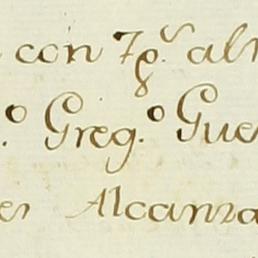 con 7e.r al
.o Greg.o Gue
es Alcanza